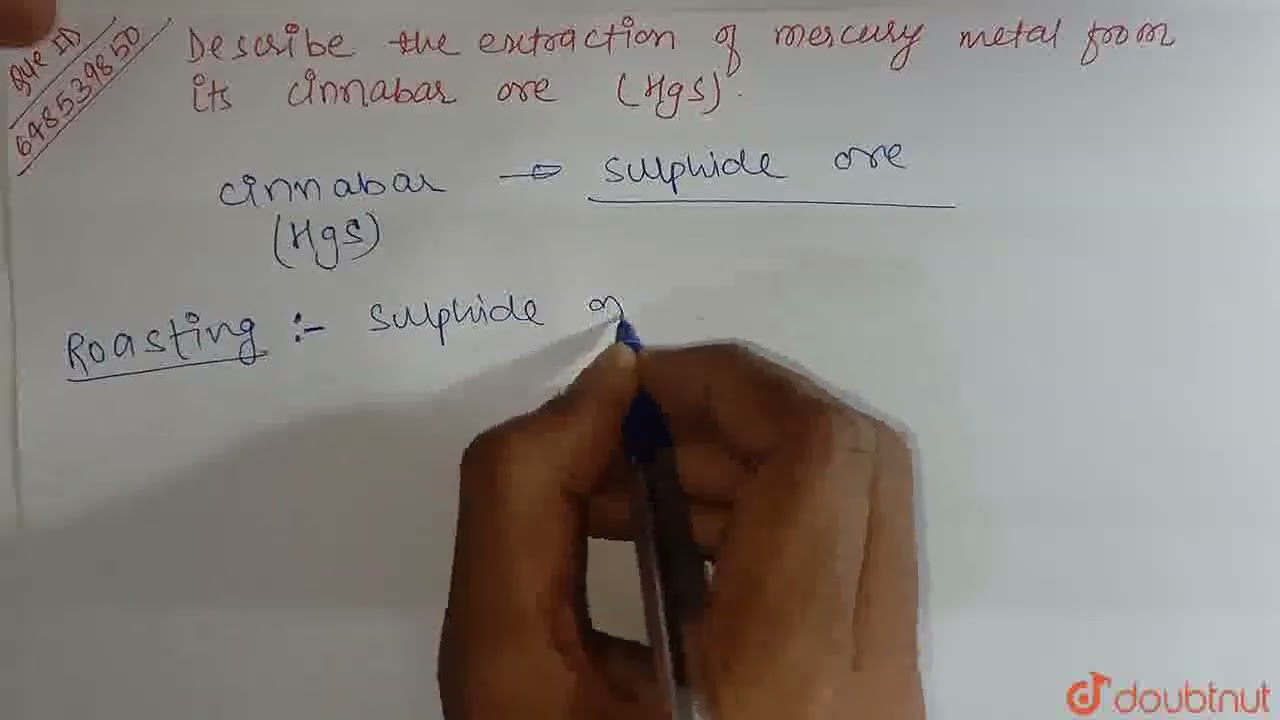 Que ID
648539850
Describe the extraction of mercury metal from
its cinnabar ore (HgS).
cinnabar → sulphide ore
(HgS)
Roasting :- sulphide
doubtnut